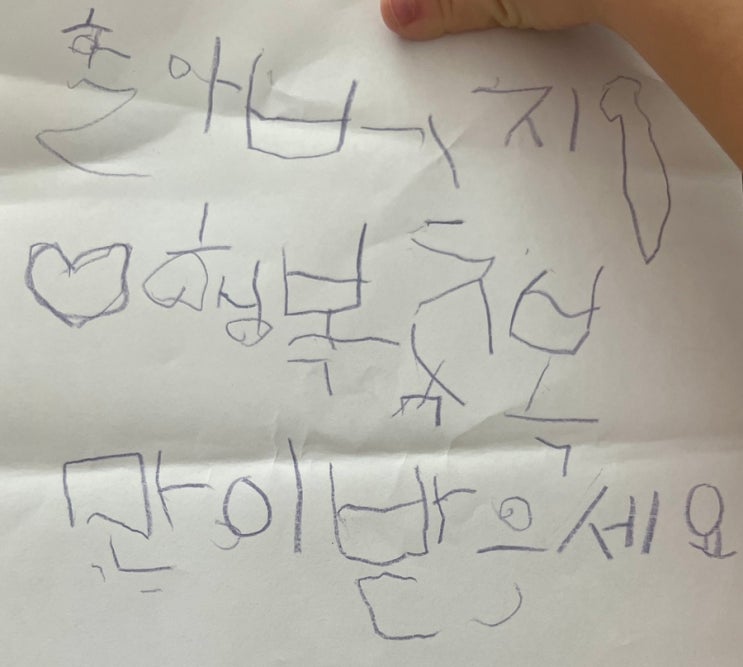 할아버지!
♡행복축복
많이받으세요